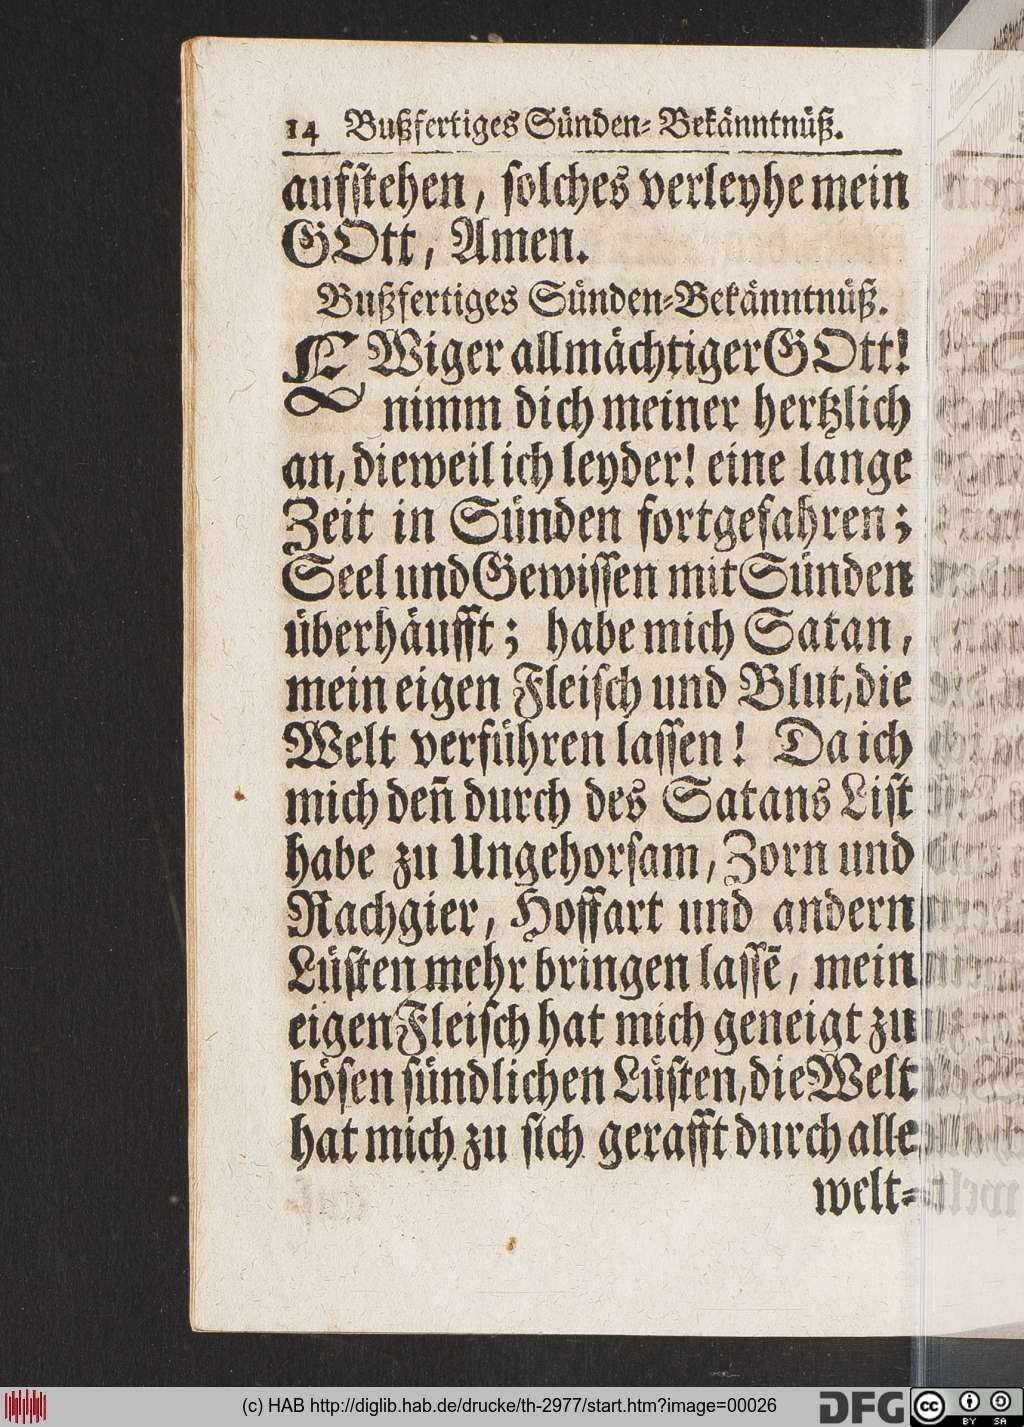 14 Bußfertiges Sünden-Bekänntnüß.
aufstehen, solches verleyhe mein
GOtt, Amen.
Bußfertiges Sünden-Bekänntnüß.
EWiger allmächtiger GOtt!
nimm dich meiner hertzlich
an, dieweil ich leyder! eine lange
Zeit in Sünden fortgefahren;
Seel und Gewissen mit Sünden
überhäufft; habe mich Satan,
mein eigen Fleisch und Blut, die
Welt verführen lassen! Da ich
mich deñ durch des Satans List
habe zu Ungehorsam, Zorn und
Rachgier, Hoffart und andern
Lüsten mehr bringen lassē, mein
eigen Fleisch hat mich geneigt zu
bösen sündlichen Lüsten, die Welt
hat mich zu sich gerafft durch alle
welt-
(c) HAB http://diglib.hab.de/drucke/th-2977/start.htm?image=00026
DFG
cc BY SA